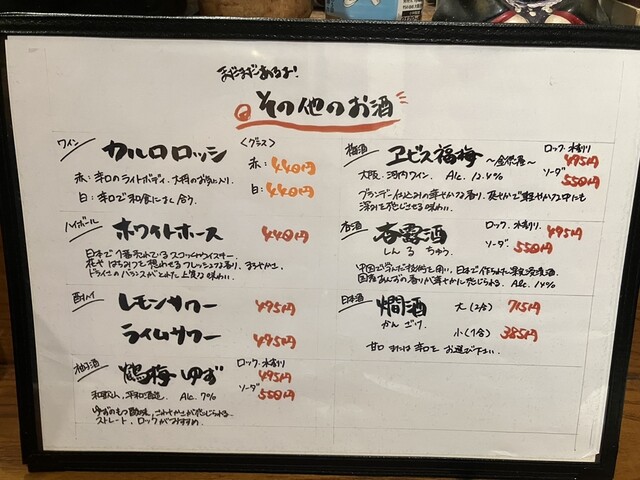 まだまだあるよ!
その他のお酒
ワイン
カルロ ロッシ
<グラス>
赤: 440円
白: 440円
赤: 辛口のライトボディ。
白: 辛口で和食によく合う。
ハイボール
ホワイトホース
440円
日本で1番売れているスコッチウイスキー。
花やはちみつを想わせるフレッシュな香り、まろやかさ、
ドライさのバランスがとれた上質な味わい。
酎ハイ
レモンサワー
495円
ライムサワー
495円
柚子酒
鶴梅 ゆず
ロック・水割り
495円
ソーダ
550円
和歌山、平和酒造。 Alc. 7%
ゆずのもつ酸味、さわやかさが感じられる。
ストレート、ロックがおすすめ。
梅酒
ヱビス福梅
ロック・水割り
495円
ソーダ
550円
大阪、河内ワイン。 Alc. 12.4%
ブランデー仕込みの華やかな香り。爽やかで軽やかな中にも
深みを感じさせる味わい。
杏酒
杏露酒
しん る ちゅう
ロック・水割り
495円
ソーダ
550円
中国で学んだ技術を用い、日本で作られた果実浸漬酒。
国産あんずの香りが華やかに感じられる。 Alc. 14%
日本酒
燗酒
かん ざけ
大(2合) 715円
小(1合) 385円
甘口 または 辛口を お選び下さい。